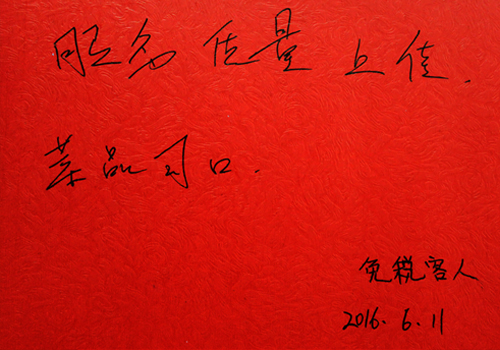 服务质量上佳.
菜品可口.
免税客人
2016.6.11